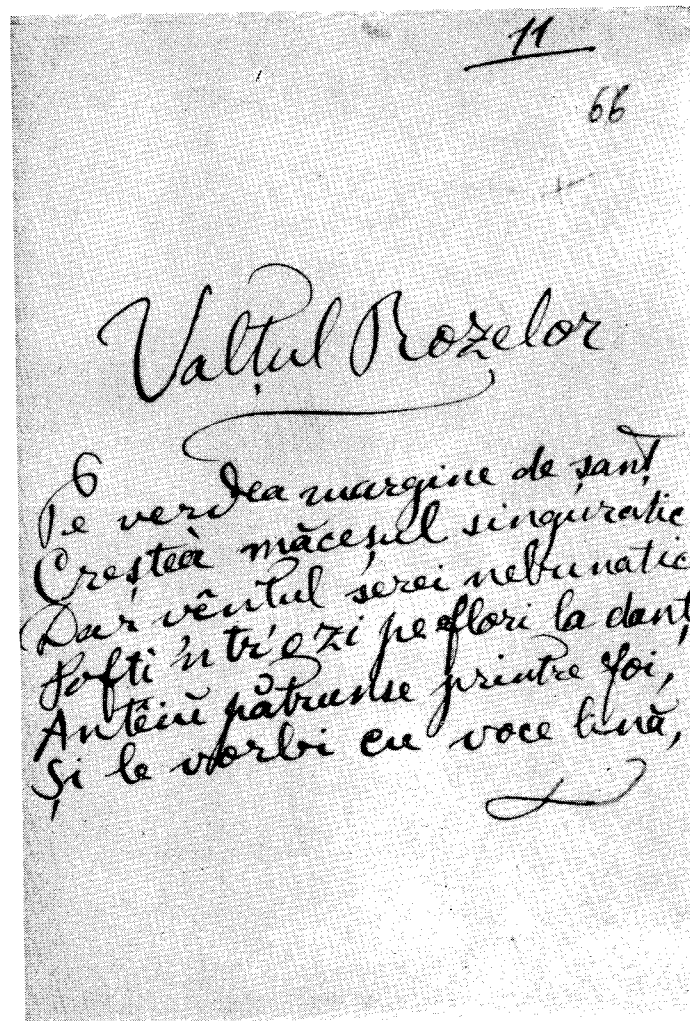 11
66
Valțul Rozelor
Pe verdea margine de șanț
Creștea măceșul singuratic
Dar vêntul serei nebunatic
Pofti 'ntr'o zi pe flori la danț
Antêiŭ pătrunse printre foi,
Și le vorbi cu voce lină,